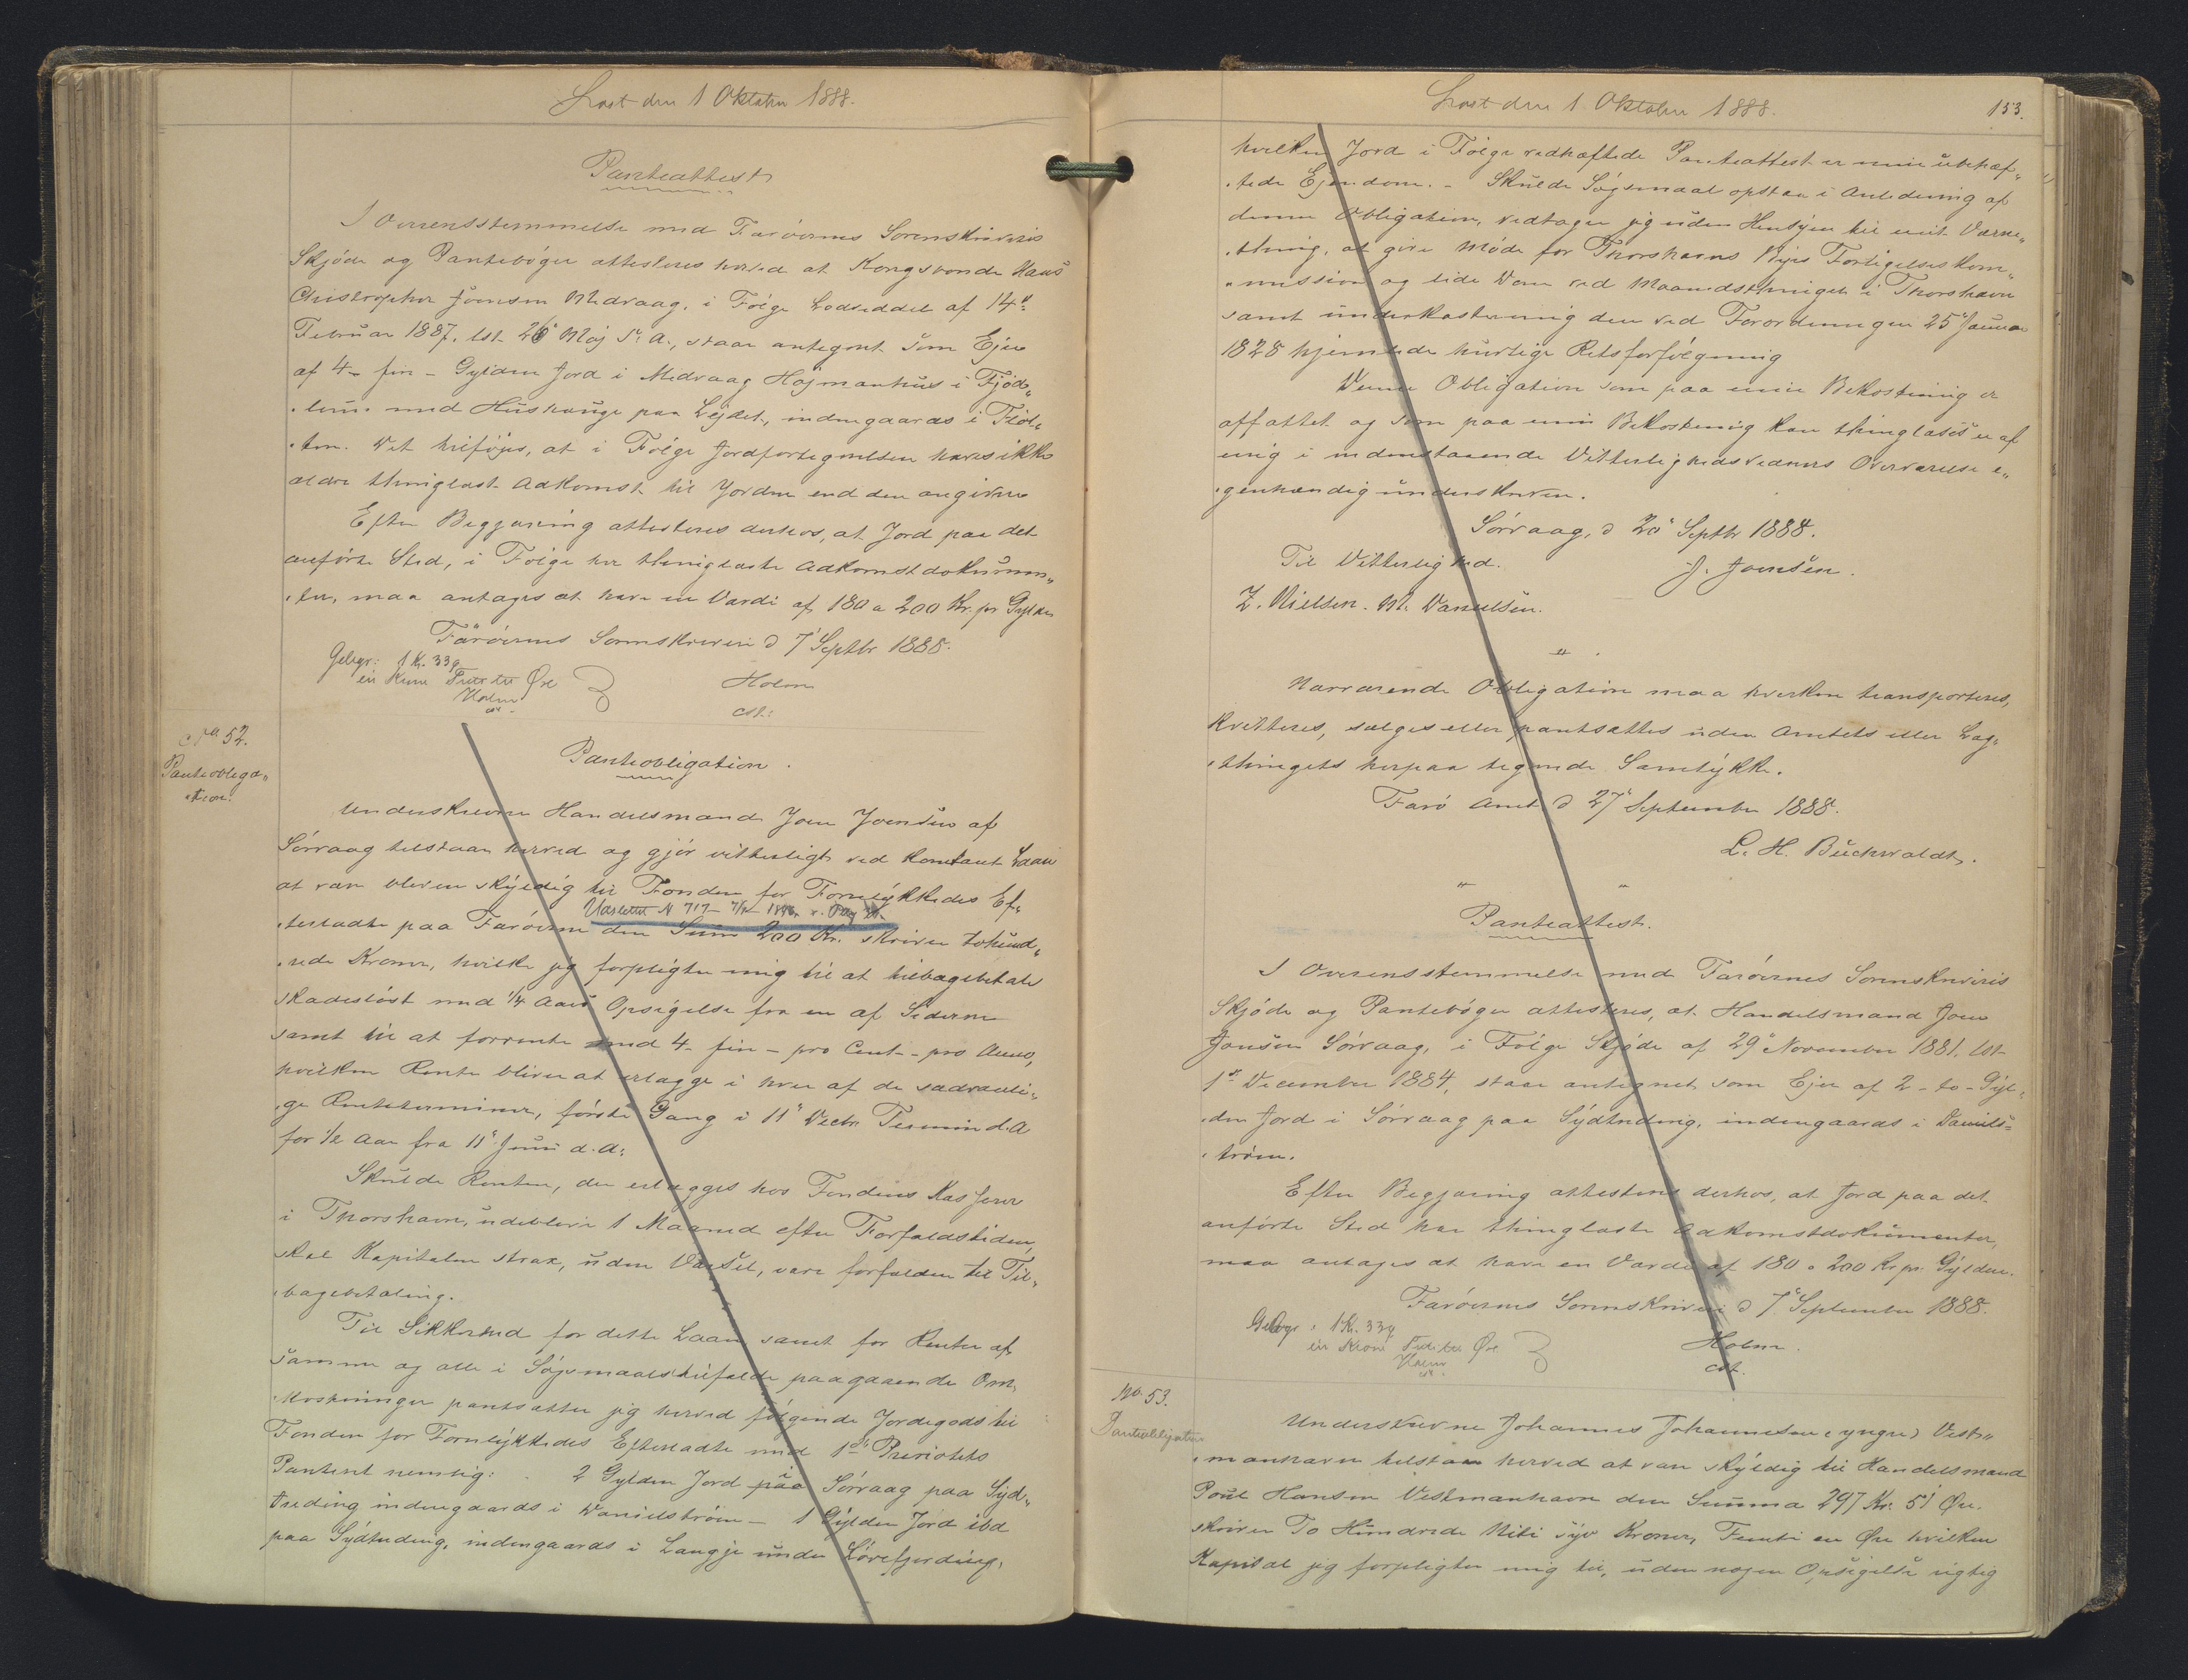 Læst den 1 Oktober 1888.
Panteattest
I Overensstemmelse med Færøernes Sorenskriveris
Skjøde og Pantebøger attesteres herved at Kongsbonde Hans
Christopher Joensen Midvaag, i Følge Lodseddel af 14de
Februar 1887, lst. 26 Maj s. A., staar antegnet som Ejer
af 4 - fire - Gylden Jord i Midvaag Højmanhus i Fjød„
„ med Hushauge paa Lejdet, indengaards i Fløt„
„tm. Det tilføjes, at i Følge Jordfortegnelsen haves ikke
ældre thinglæst Adkomst til Jorden end den angivne
Efter Begjæring attesteres derhos, at Jord paa det
anførte Sted, i Følge her thinglæste Adkomstdokumen„
„ter, maa antages at have en Værdi af 180 a 200 Kr. pr Gylden
Færøernes Sorenskriveri d 7' Septbr 1888.
Gebyr: 1 K. 33 ø
en Krone Treti tre Øre
Holm
cst.
Holm
cst:
No 52.
Panteobliga„
„tion.
Panteobligation.
Underskrevne Handelsmand Joen Joensen af
Sørvaag tilstaar herved og gjør vitterligt ved kontant Laan
at være bleven skyldig til Fonden for Forulykkedes Ef„
Udslettet N 717
„terladte paa Færøerne den Sum 200 Kr. skriver tohund„
„rede Kroner, hvilke jeg forpligter mig til at tilbagebetale
skadesløst med 1/4 Aars Opsigelse fra en af Siderne
samt til at forrente med 4 - fire - pro Cent - pro Anno,
hvilken Rente bliver at erlægge i hver af de sædvanli„
„ge Rentetermine, første Gang i 11' Decbr Termin d. A
for 1/2 Aar fra 11' Juni d. A.
Skulde Renten, der erlægges hos Fondens Kasserer
i Thorshavn, udeblive 1 Maaned efter Forfaldstiden,
skal Kapitalen strax, uden Varsel, være forfalden til Til„
„bagebetaling.
Til Sikkerhed for dette Laan samt for Renter af
samme og alle i Søgsmaalstilfælde paagaaende Om„
kostninger pantsætter jeg herved følgende Jordegods til
Fonden for Forulykkedes Efterladte med 1ste Prioritets
Panteret nemlig: 2 Gylden Jord paa i Sørvaag paa Syd„
treding indengaards i Danielstrøen - 1 Gylden Jord ibd
paa Sydtreding, indengaards i Laugje under Løvefjerding,
Læst den 1 Oktober 1888.
153.
hvilken Jord i Følge vedhæftede Panteattest er min ubehæf„
„tede Ejendom. - Skulde Søgsmaal opstaa i Anledning af
denne Obligation, vedtager jeg uden Hensyn til mit Værne„
„thing, at give Møde for Thorshavns Byes Forligelseskom„
„mission og lide Dom ved Maanedsthinget i Thorshavn
samt underkastning den ved Forordningen 25' Januar
1828 hjemlede hurtige Retsforfølgning
Denne Obligation som paa min Bekostning er
affattet og som paa min Bekostning kan thinglæses er af
mig i nedenstaaende Vitterlighedsvidners Overværelse e„
„genhændig underskreven.
Sørvaag, d 20' Septbr 1888.
Til Vitterlighed.
J. Joensen.
Z. Nielsen. M. Danielsen.
„
Nærværende Obligation maa hverken transporteres,
kvitteres, sælges eller pantsættes uden Amtets eller Lag„
„thingets herpaa tegnede Samtykke.
Færø Amt d 27' September 1888.
L. H. Buchwaldt.
„ „
Panteattest.
I Overensstemmelse med Færøernes Sorenskriveris
Skjøde og Pantebøger attesteres, at Handelsmand Joen
Joensen Sørvaag, i Følge Skjøde af 29' November 1881, lst.
1ste December 1884, staar antegnet som Ejer af 2 - to - Gyl„
„den Jord i Sørvaag paa Sydtreding, indengaards i Daniels„
„trøen.
Efter Begjæring attesteres derhos, at Jord paa det
anførte Sted her thinglæste Adkomstdokumenter,
maa antages at have en Værdi af 180 a 200 Kr. pr. Gylden.
Færøernes Sorenskriveri d 7' September 1888.
Gebyr: 1 K. 33 ø
en Krone Treti tre Øre
Holm
cst.
Holm.
cst.
No. 53.
Panteobligation
Underskrevne Johannes Johannesen (yngre) Vest„
„manhavn tilstaar herved at være skyldig til Handelsmand
Poul Hansen Vestmanhavn den Summa 297 Kr. 51 Øre.
skriver To Hundrede Niti syv Kroner, Femti en Øre hvilken
Kapital jeg forpligter mig til, uden nogen Opsigelse rigtig